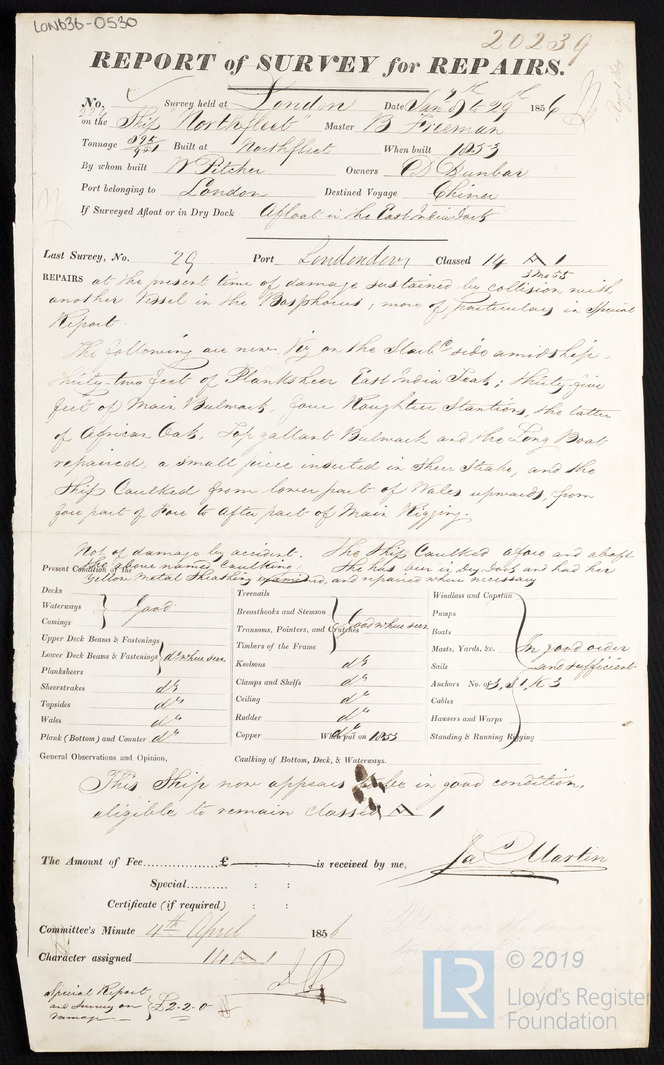 LON636-0530
20239
REPORT of SURVEY for REPAIRS.
No. Survey held at London Date Jan 8th to 29th 1856
on the Ship "Northfleet" Master B Freeman
Tonnage 895/951 Built at Northfleet When built 1853
By whom built W Pitcher Owners D Dunbar
Port belonging to London Destined Voyage China
If Surveyed Afloat or in Dry Dock Afloat in the East India Dock
Last Survey, No. 29 Port Londonderry Classed 14 A 1
3 Ms 55
REPAIRS at the present time of damage sustained by collision with
another Vessel in the Bosphorus, more of particulars in Special
Report.
The following are new Viz on the Starbd side amidship,
thirty-two feet of Planksheer East India Teak; thirty-five
feet of Main Bulwark, four Roughtree Stantions, the latter
of African Oak, Topgallant Bulwark and the Long Boat
repaired, a small piece inserted in Sheer Strake, and the
Ship Caulked from lower part of Wales upwards, from
fore part of Fore to After part of Main Rigging.
Not of damage by accident. The Ship Caulked afore and abaft
the above named Caulking. She has been in Dry Dock and had her
Present Condition of the Yellow Metal Sheathing examined, and repaired where necessary
Decks
Waterways Good
Comings
Upper Deck Beams & Fastenings
Lower Deck Beams & Fastenings do where seen
Planksheers
Sheerstrakes do
Topsides do
Wales do
Plank (Bottom) and Counter do
Treenails
Breasthooks and Stemson
Transoms, Pointers, and Crutches Good where seen
Timbers of the Frame
Keelsons do
Clamps and Shelfs do
Ceiling do
Rudder do
Copper do When put on 1853
Windlass and Capstan
Pumps
Boats
Masts, Yards, &c. In good order
Sails and sufficient
Anchors No. of 3, S 1, K 3
Cables
Hawsers and Warps
Standing & Running Rigging
General Observations and Opinion, Caulking of Bottom, Deck, & Waterways.
This Ship now appears to be in good condition,
eligible to remain classed A 1
The Amount of Fee £ : : is received by me, Jas Martin
Special : :
Certificate (if required) : :
Committee's Minute 4th April 1856
Character assigned 14 A 1
Special Report
and Survey on £2-2-0
damage
© 2019
LR
Lloyd's Register
Foundation